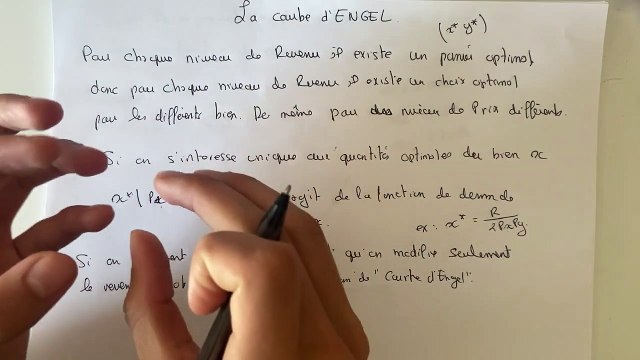 La courbe d'ENGEL.
(x* y*)
Pour chaque niveau de Revenu il existe un panier optimal
donc pour chaque niveau de Revenu, il existe un choix optimal
pour les différents bien. De même pour des niveau de Prix différents.
Si on s'intéresse unique aux quantités optimales du bien x
x* | Px git de la fonction de demande
x. ex: x* = R / 2PxPy
Si on qu'on modifie seulement
le reven de "Courbe d'Engel".